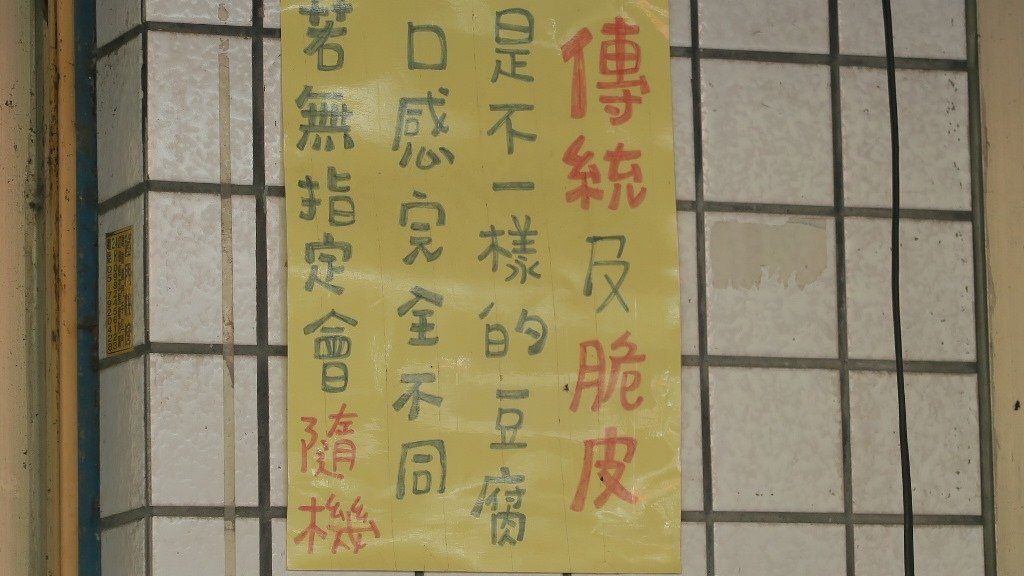 傳統及脆皮
是不一樣的豆腐
口感完全不同
若無指定會隨機